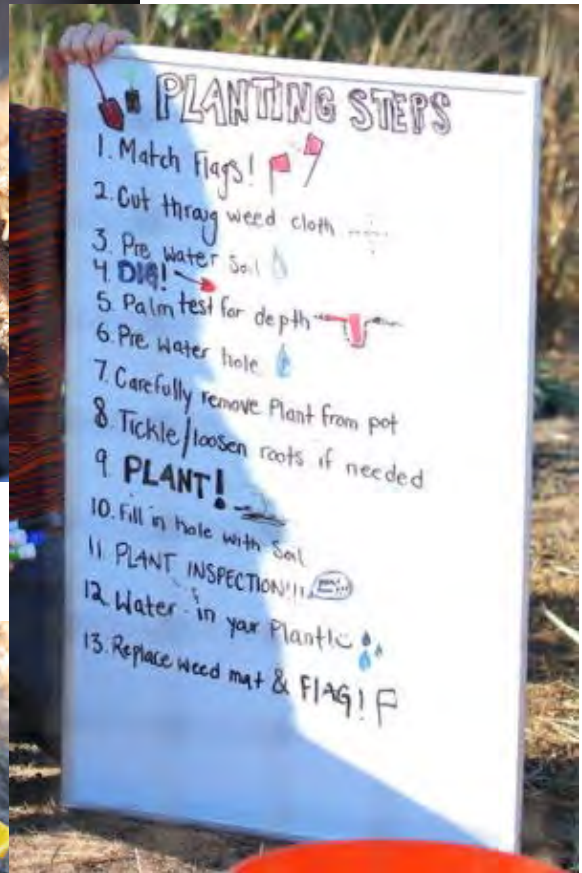 PLANTING STEPS
1. Match Flags!
2. Cut throug weed cloth
3. Pre water Soil
4. DIG!
5. Palm test for depth
6. Pre water hole
7. Carefully remove Plant from pot
8. Tickle/loosen roots if needed
9 PLANT!
10. Fill in hole with Soil
11 PLANT INSPECTION!!!
12. Water in your Plant
13. Replace weed mat & FLAG!